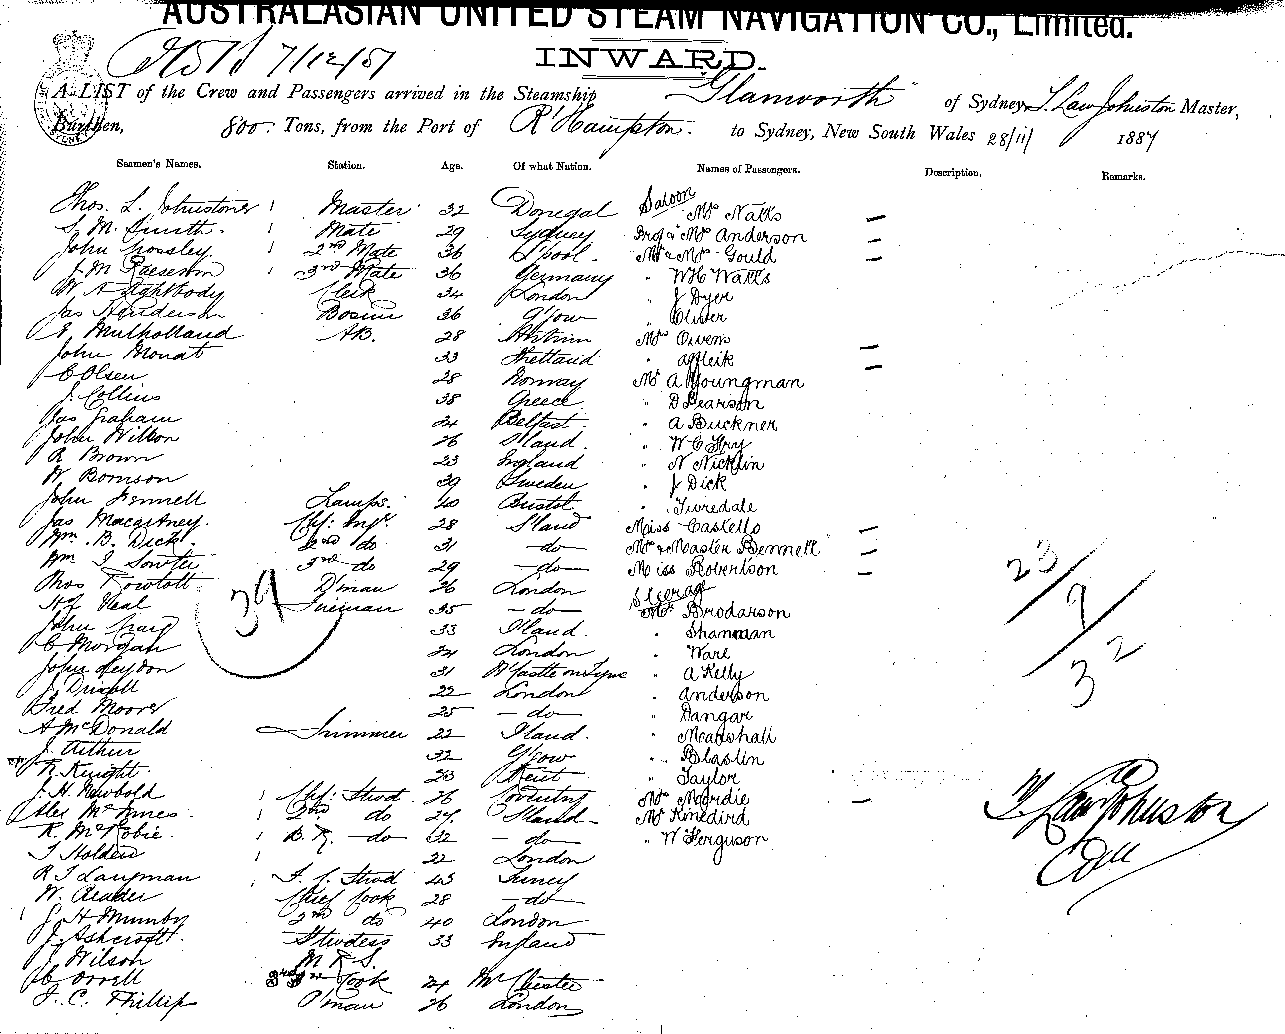 AUSTRALASIAN UNITED STEAM NAVIGATION CO., Limited.
7/12/87
INWARD.
A LIST of the Crew and Passengers arrived in the Steamship Glanworth of Sydney, T. Law Johnston Master,
Burthen, 800 Tons, from the Port of R'Hampton to Sydney, New South Wales 28/11/ 1887
Seamen's Names. Station. Age. Of what Nation. Names of Passengers. Description. Remarks.
Saloon
Thos. L. Johnstone Master 32 Donegal Mr Watts
S. M. Smith Mate 29 Sydney Mrs Anderson
John Crossley 2nd Mate 36 L'pool Mr & Mrs Gould
J. M. 3rd Mate 36 Germany " W H Watts
W. A. Lightbody Clerk 34 London " J Dyer
Jas Henderson Bosun 36 G'gow " Oliver
E. Mulholland AB. 28 Antrim Mrs Owens
John Mouat 33 Shetland " Affleik
C Olsen 28 Norway Mr A Youngman
J. Collins 38 Greece " D Pearson
Jas Graham 24 Belfast " A Buckner
John Wilson 26 S'land " W C Fry
A Brown 23 England " N Nicklin
W Bomson 39 Sweden " J Dick
John Fennell Lamps. 40 Bristol " Tweedale
Jas Macartney. Chf: Engr. 28 S'land Miss Castello
Wm. B. Dick. 2nd do 31 -do- Mrs & Master Bennett
Wm J Sowter 3rd do 29 -do- Miss Robertson
Thos Rowtott D'man 26 London Steerage
Hy Neal Fireman 35 -do- Mr Brodarson
John Craig 33 I'land. " Shannan
C Morgan 24 London " Ware
John Leydon 31 N'Castle on Tyne " A Kelly
J. Driscoll 22 London " Anderson
Fred Moore 25 -do- " Dangar
A McDonald Trimmer 22 I'land. " Marshall
J. Arthur 32 G'gow " Blaslin
R. Knight. 23 Kent " Taylor
J. H. Newbold Chf: Stwd 26 Coventry Mrs Nardie
Alex McInnes 2nd do 29. S'land Mr Kinedird
R. McRobie. B. R. do 32 -do- " W Ferguson
T Holden 22 London
R J Langman F. C. Stwd 43 Surrey
W. Reader Chief Cook 28 -do-
J. H Mumby 2nd do 40 London
J. Ashcroft. Stwdess 33 England
J Wilson M R S.
C Orrell 3rd Cook 24 McChester
J. C. Phillips P'man 26 London
39
23
9
32
T Law Johnston